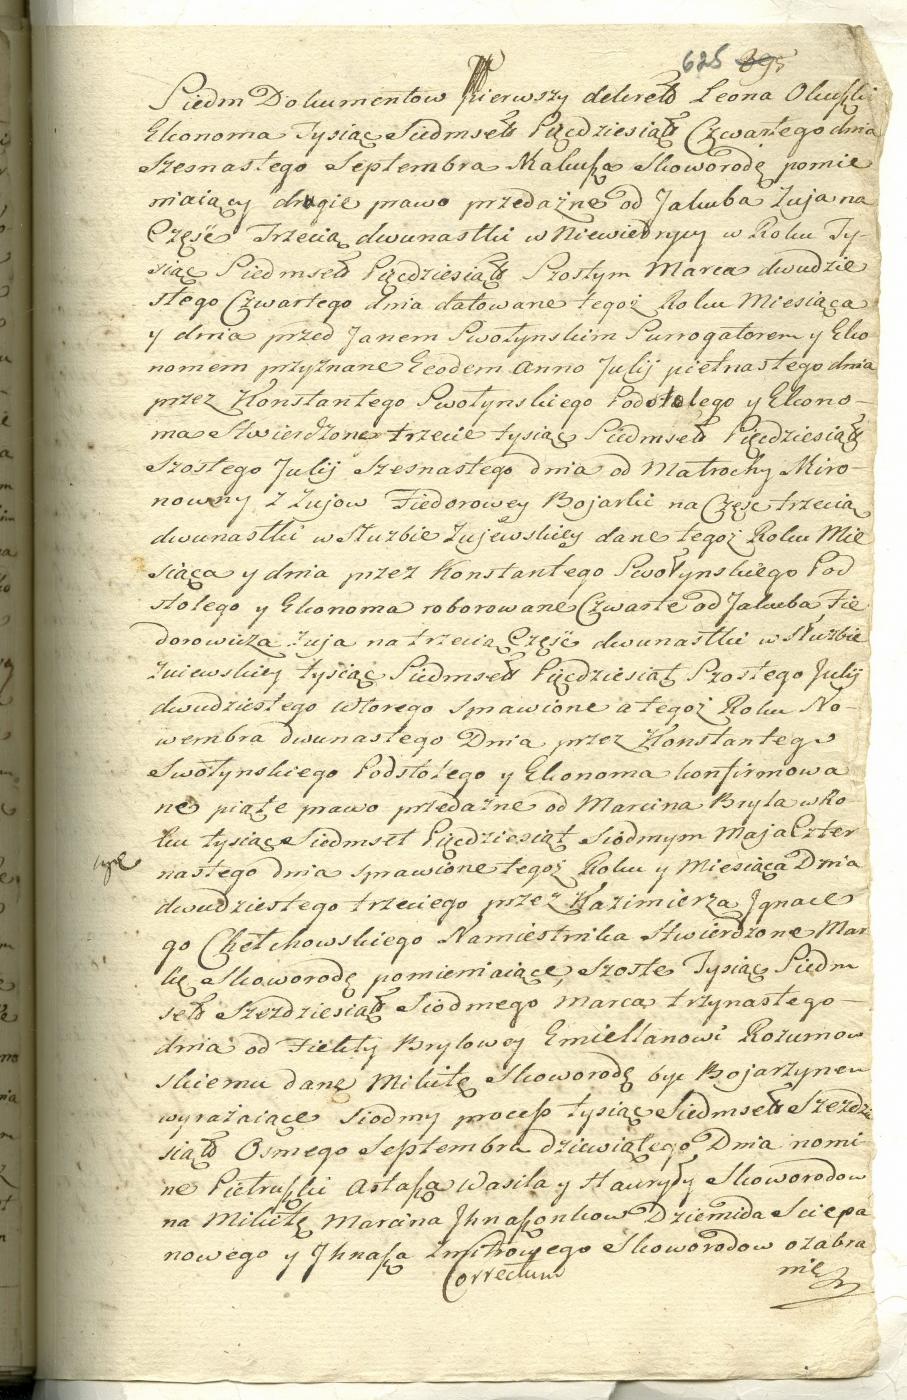 625 395
Siedm Dokumentow Pierwszy dekrett Leona Okuszki
Ekonoma Tysiąc Siedmsett Pięćdziesiątt Czwartego dnia
Szesnastego Septembra Makuszą Skoworodę pomie
niaiący drugie prawo przedażne od Jakuba Zuja na
Część Trzecią dwunastki w Niewiedrycy w Roku Ty-
siąc Siedmsett Pięćdziesiątt Szostym Marca dwudzie
stego Czwartego dnia datowane tegoż Roku Miesiąca
y dnia przed Janem Swołynskim Surrogatorem y Eko
nomem przyznane Eeodem Anno Julij pietnastego dnia
przez Konstantego Swołynskiego Podstolego y Ekono-
ma Stwierdzone trzecie tysiąc Siedmsett Pięćdziesiątt
Szostego Julij Szesnastego dnia od Matrochy Miro-
nowny z Zujow Fiedorowey Bojarki na Częsc trzecią
dwunastki w Służbie Zujewskiey dane tegoż Roku Mie
siąca y dnia przez Konstantego Swołynskiego Pod
stolego y Ekonoma roborowane Czwarte od Jakuba Fie
dorowicza Zuja na trzecią Część dwunastki w Służbie
Zuiewskiey tysiąc Siedmsett Pięćdziesiąt Szostego Julij
dwudziestego wtorego sprawione a tegoż Roku No-
wembra dwunastego Dnia przez Konstantego
Swołynskiego Podstolego y Ekonoma konfirmowa
ne piąte prawo przedażne od Marcina Bryla w Ro-
ku tysiąc Siedmset Pięćdziesiąt Siodmym Maja Czter
nastego dnia sprawione tegoż Roku y Miesiąca Dnia
dwudziestego trzeciego przez Kazimierza Ignace
go Chełchowskiego Namiestnika Stwierdzone Mar
kę Skoworodę pomieniaiące, Szoste Tysiąc Siedm
sett Szezdziesiątt Siodmego Marca trzynastego-
dnia od Fiekły Brylowey Emiellanowi Rozumow
skiemu dane Mikitę Skoworodę byc Bojarzynem
wyrażaiące siodmy process tysiąc Siedmsett Szezdzie
siątt Osmego Septembra dziewiątego Dnia nomi-
ne Pietruszki Astasza Wasila y Hauryły Skoworodow
na Mikitę Marcina Ihnaszonkow Dziemida Sciepa
nowego y Ihnasza Zmitrowego Skoworodow o zabra
nie
Correctum